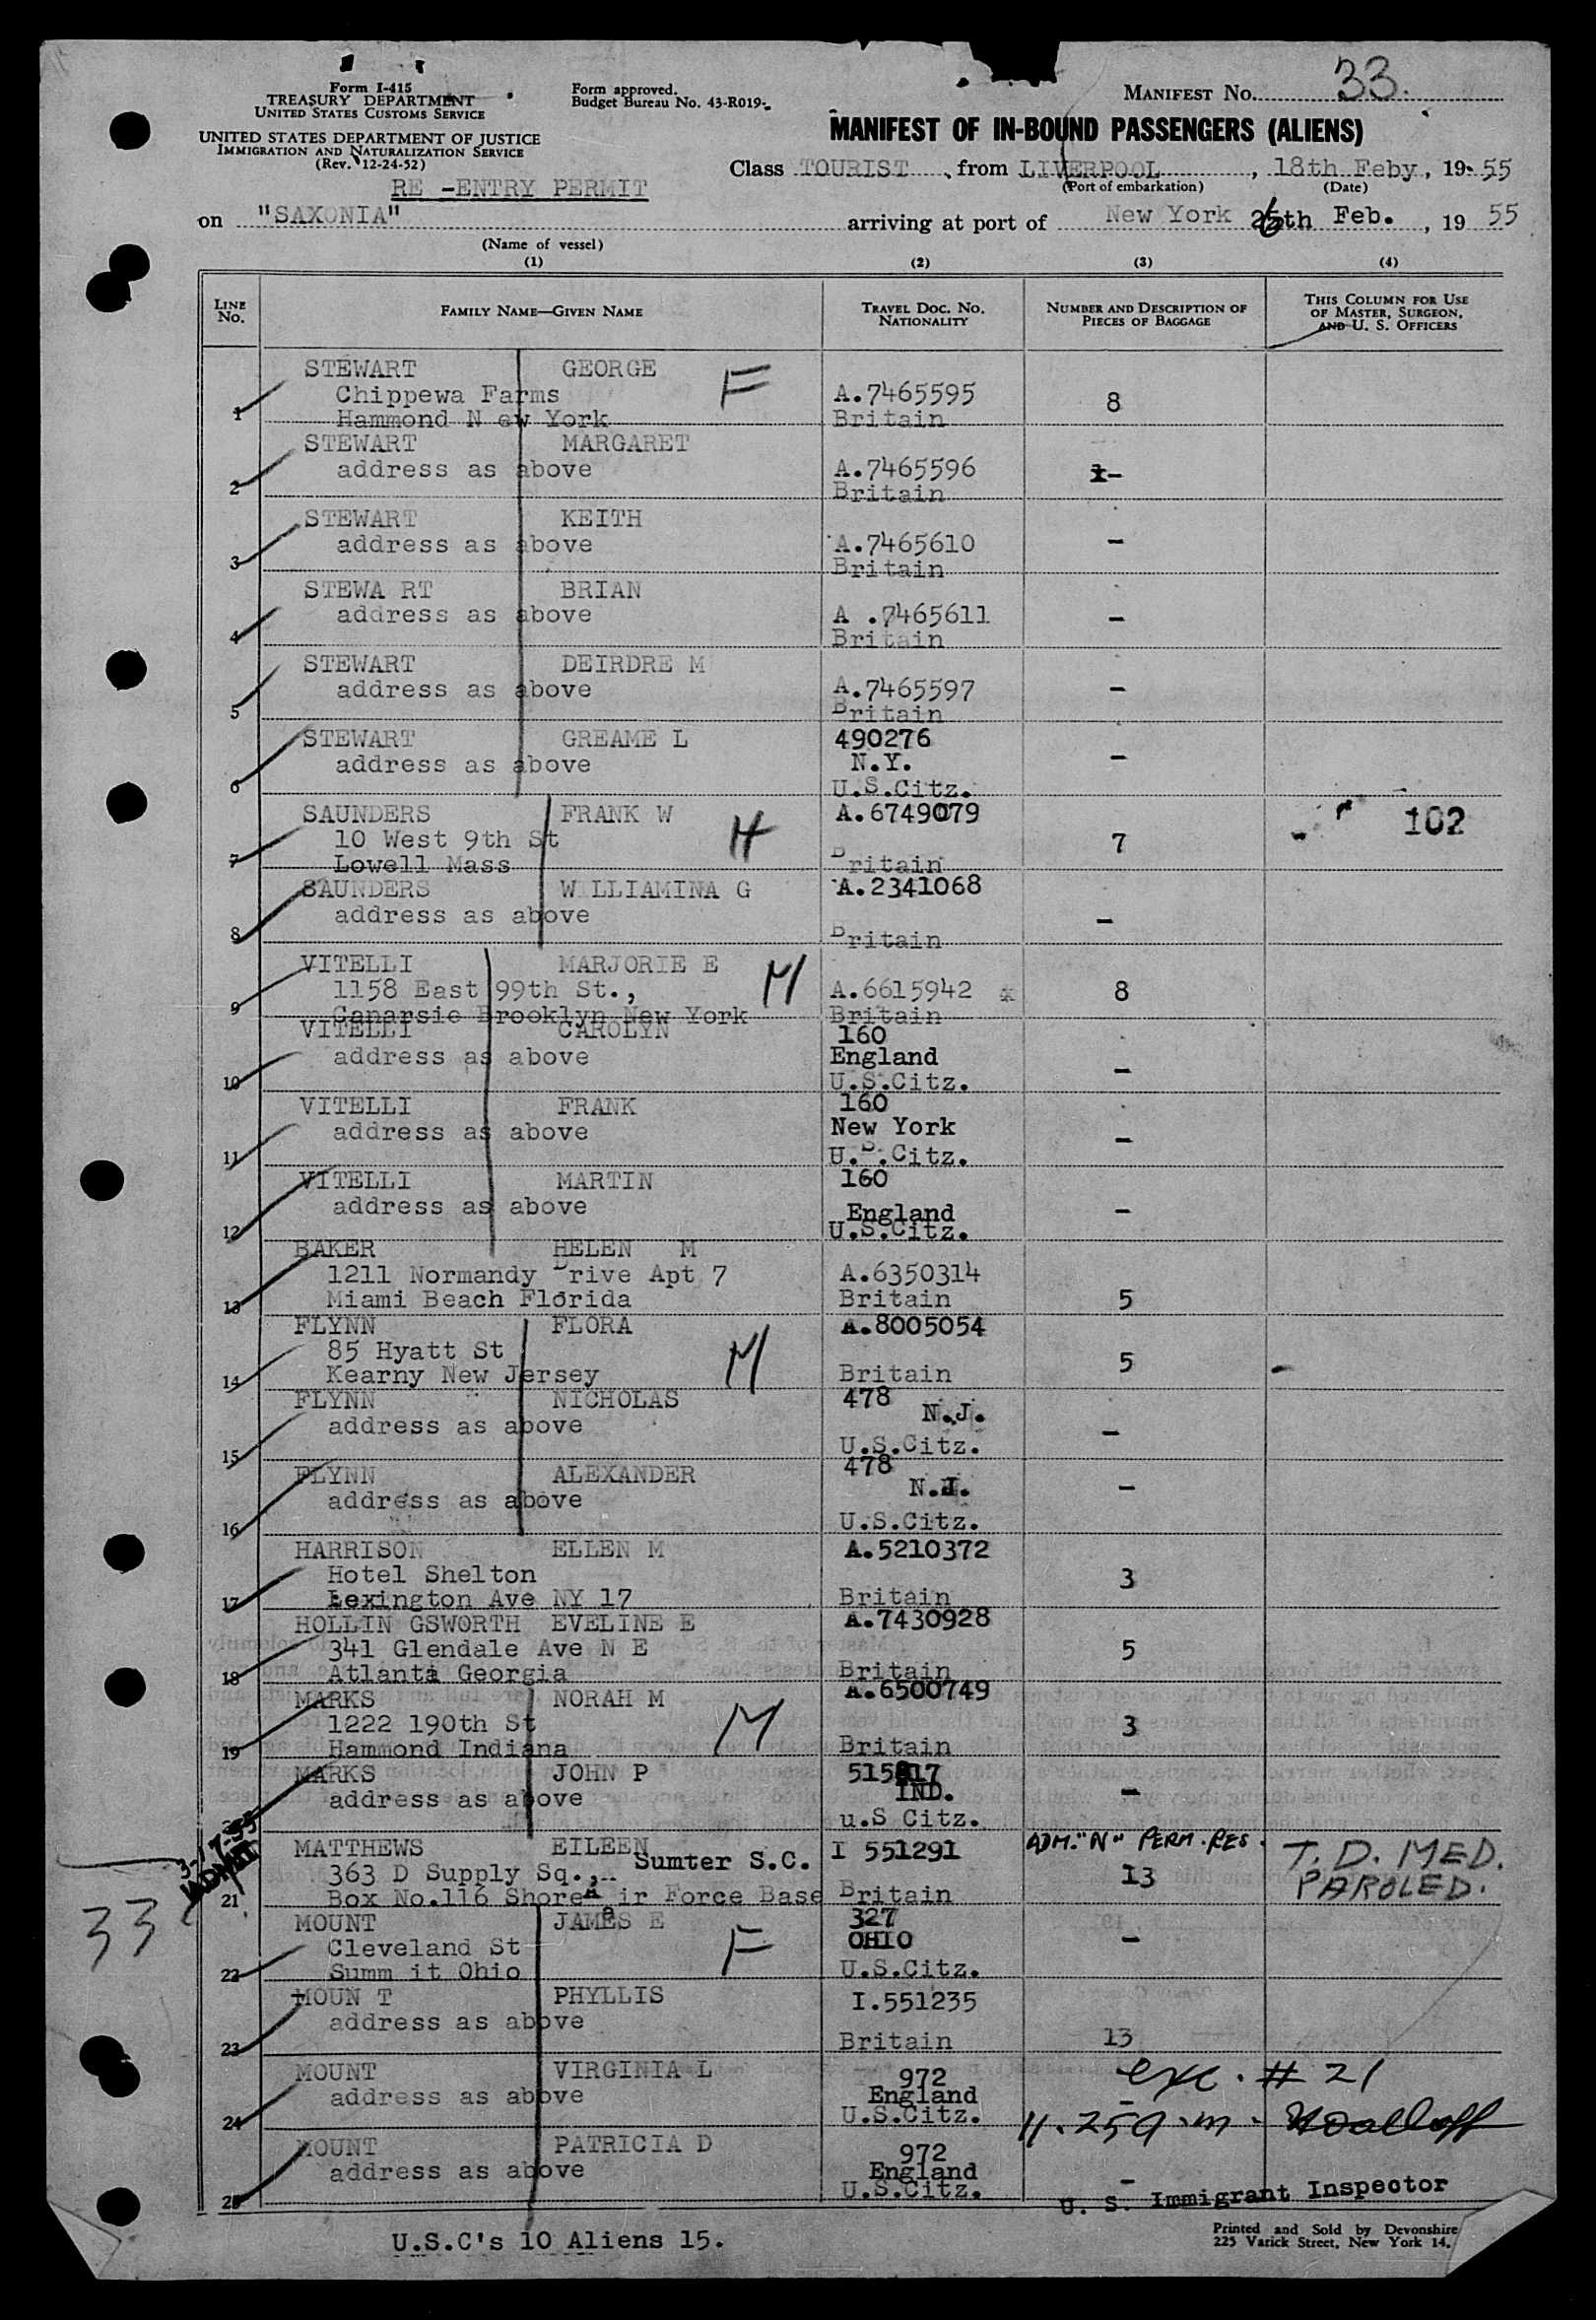 Form I-415
TREASURY DEPARTMENT
UNITED STATES CUSTOMS SERVICE
UNITED STATES DEPARTMENT OF JUSTICE
IMMIGRATION AND NATURALIZATION SERVICE
(Rev. 12-24-52)
RE -ENTRY PERMIT
Form approved.
Budget Bureau No. 43-R019-
MANIFEST NO. 33.
MANIFEST OF IN-BOUND PASSENGERS (ALIENS)
Class TOURIST, from LIVERPOOL, 18th Feby, 19 55
(Port of embarkation) (Date)
on "SAXONIA" arriving at port of New York 26th Feb., 19 55
(Name of vessel)
(1) (2) (3) (4)
LINE NO. FAMILY NAME—GIVEN NAME TRAVEL DOC. NO. NATIONALITY NUMBER AND DESCRIPTION OF PIECES OF BAGGAGE THIS COLUMN FOR USE OF MASTER, SURGEON, AND U. S. OFFICERS
STEWART GEORGE F
Chippewa Farms A.7465595
1 Hammond N ew York Britain 8
STEWART MARGARET
address as above A.7465596 -
2 Britain
STEWART KEITH
address as above A.7465610 -
3 Britain
STEWA RT BRIAN
address as above A .7465611 -
4 Britain
STEWART DEIRDRE M
address as above A.7465597 -
5 Britain
STEWART GREAME L 490276
address as above N.Y. -
6 U.S.Citz.
SAUNDERS FRANK W A.6749079 102
10 West 9th St H 7
7 Lowell Mass Britain
SAUNDERS W LLIAMINA G A.2341068
address as above -
8 Britain
VITELLI MARJORIE E M
1158 East 99th St., A.6615942 8
9 Canarsie Brooklyn New York Britain
VITELLI CAROLYN 160
address as above England -
10 U.S.Citz.
VITELLI FRANK 160
address as above New York -
11 U.S.Citz.
VITELLI MARTIN 160
address as above England -
12 U.S.Citz.
BAKER HELEN M
1211 Normandy Drive Apt 7 A.6350314
13 Miami Beach Florida Britain 5
FLYNN FLORA A.8005054
85 Hyatt St M 5
14 Kearny New Jersey Britain
FLYNN NICHOLAS 478
address as above N.J. -
15 U.S.Citz.
FLYNN ALEXANDER 478
address as above N.J. -
16 U.S.Citz.
HARRISON ELLEN M A.5210372
Hotel Shelton 3
17 Lexington Ave NY 17 Britain
HOLLIN GSWORTH EVELINE E A.7430928
341 Glendale Ave N E 5
18 Atlanta Georgia Britain
MARKS NORAH M A.6500749
1222 190th St M 3
19 Hammond Indiana Britain
MARKS JOHN P
address as above IND. -
u.S Citz.
3-17-55
ADMIT
MATTHEWS EILEEN I 551291 ADM. "N" PERM. RES. T. D. MED.
363 D Supply Sq., Sumter S.C. 13 PAROLED.
21 Box No.116 Shore A ir Force Base Britain
33
MOUNT JAMES E 327
Cleveland St F OHIO -
22 Summ it Ohio U.S.Citz.
MOUN T PHYLLIS I.551235
address as above
23 Britain 13
MOUNT VIRGINIA L 972 exc. # 21
address as above England -
24 U.S.Citz.
MOUNT PATRICIA D 972
address as above England -
25 U.S.Citz.
U. S. Immigrant Inspector
U.S.C's 10 Aliens 15.
Printed and Sold by Devonshire
225 Varick Street, New York 14,